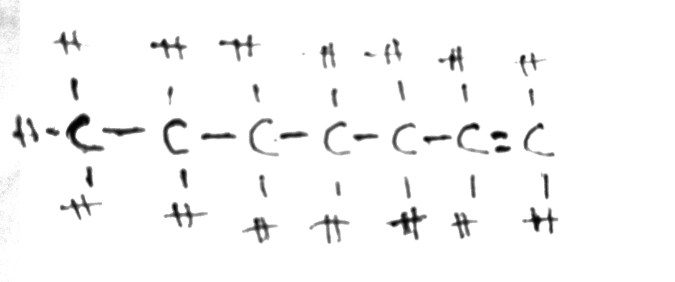 H H H H H H H
H-C-C-C-C-C-C=C
H H H H H H H